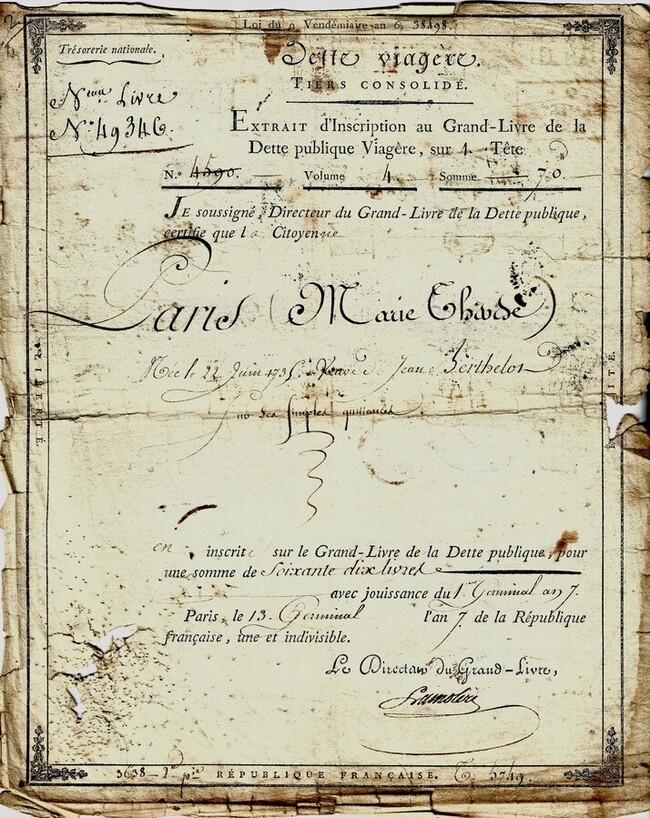 Loi du 9 Vendémiaire an 6, 38498.
Trésorerie nationale.
Dette viagère.
TIERS CONSOLIDÉ.
Livre
N.° 49346.
EXTRAIT d'Inscription au Grand-Livre de la
Dette publique Viagère, sur 1 Tête
N.° 4590. Volume 4 Somme 70.
JE soussigné, Directeur du Grand-Livre de la Dette publique,
certifie que la Citoyenne
Paris (Marie
Née le 22 Juin Veuve de Jean Berthelot
simples quittances
LIBERTÉ
en inscrite sur le Grand-Livre de la Dette publique, pour
une somme de Soixante dix livres
avec jouissance du 1.er Germinal an 7.
Paris, le 13. Germinal l'an 7 de la République
française, une et indivisible.
Le Directeur du Grand-Livre,
3638 RÉPUBLIQUE FRANÇAISE.